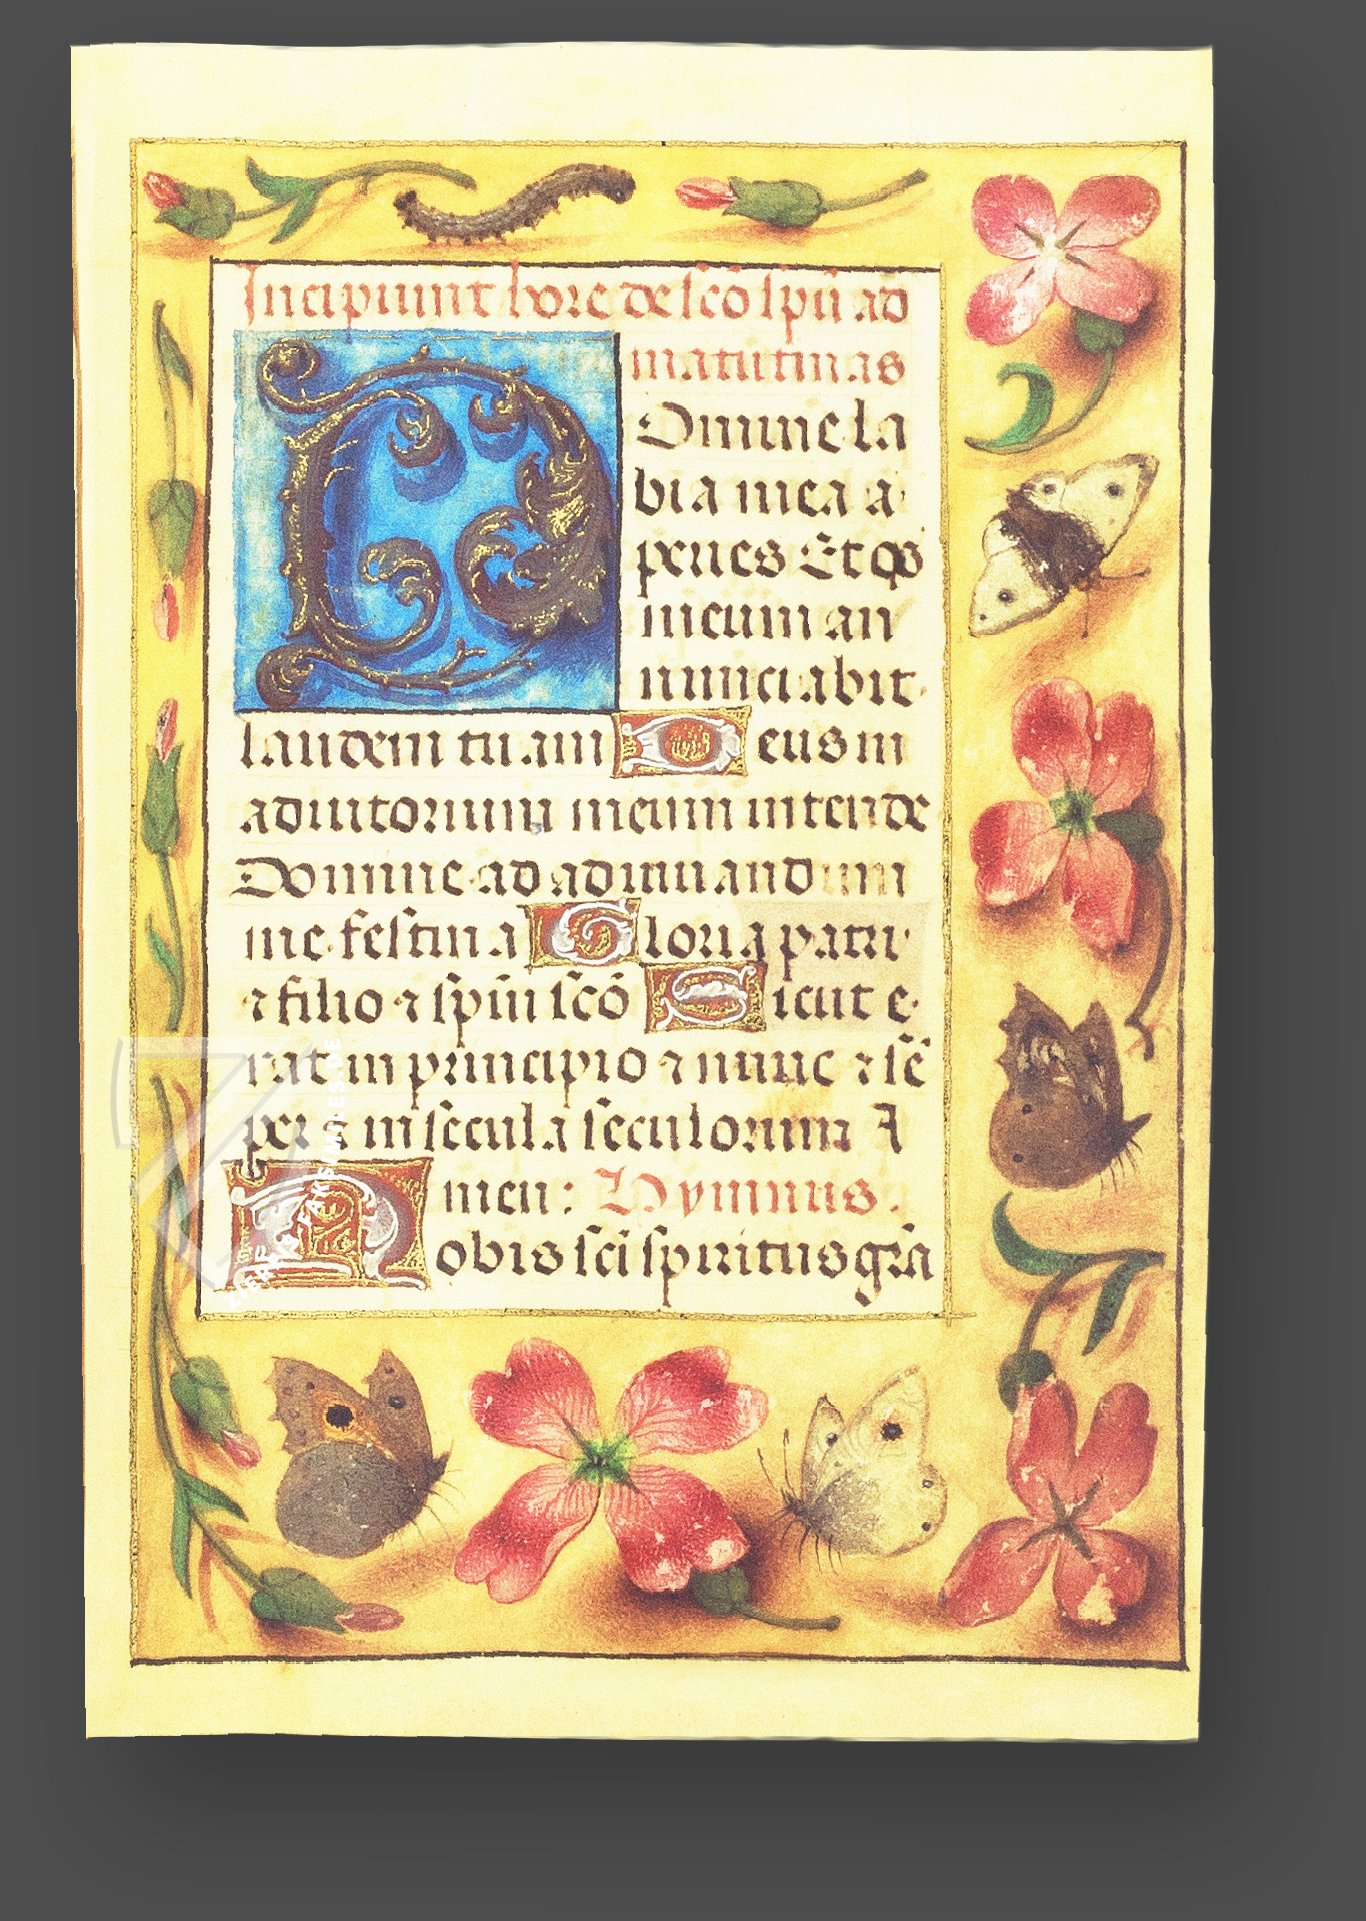 Incipiunt hore de sc̄o sp̄u ad
matutinas
Domine la
bia mea a
peries Et os
meum an
nunciabit
laudem tuam Deus in
adiutorium meum intende
Domine ad adiuuandum
me festina Gloria patri
⁊ filio ⁊ sp̄iu sc̄o Sicut e
rat in principio ⁊ nunc ⁊ sē
per ⁊ in secula seculorum A
men: Hymnus.
Nobis sc̄i spiritus gr̄a